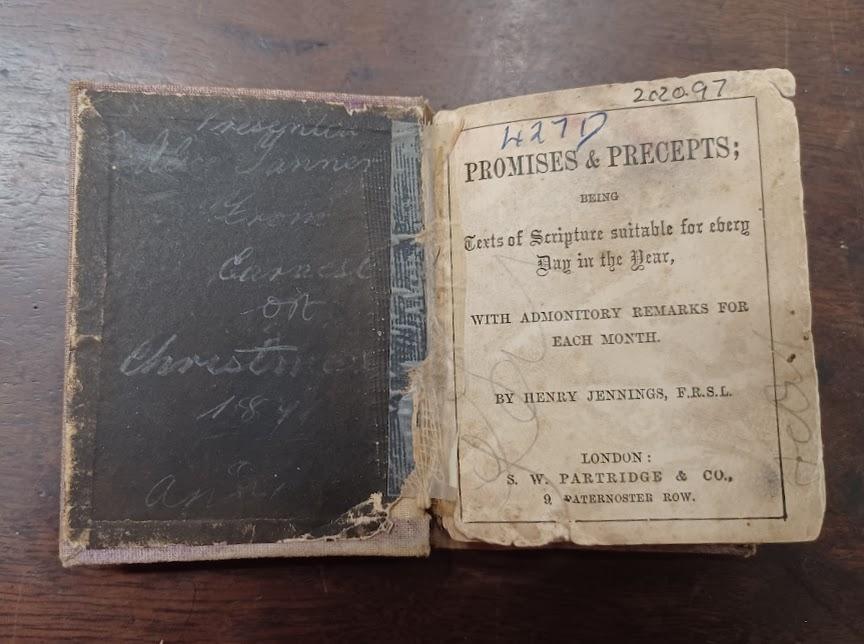 Presented
Tanner
From
Earnest
on
Christmas
189
202097
427D
PROMISES & PRECEPTS;
BEING
Texts of Scripture suitable for every
Day in the Year,
WITH ADMONITORY REMARKS FOR
EACH MONTH.
BY HENRY JENNINGS, F.R.S.L.
LONDON:
S. W. PARTRIDGE & CO.,
9, PATERNOSTER ROW.